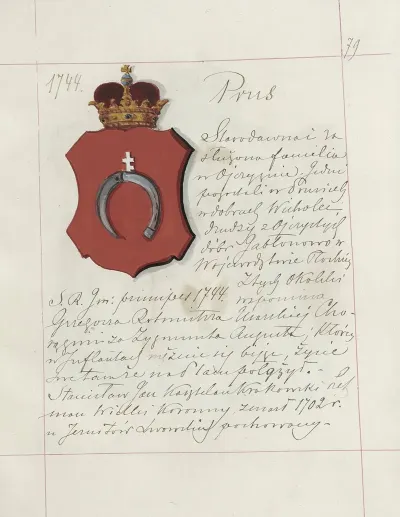 79
1744.
Prus
Starodawna i za
służona familia
w Ojczyznie. Jedni
posiedli w Prusiech
w dobrach
drudzy z Ojczystych
dóbr Jabłonowo w
Województwie
Z tych Okolski
wspomina
S. R. Im. princeps 1744.
Grzegorza Rotmistrza
za Zygmunta Augusta, który
w Inflanciech mężnie się bijąc, życie
swe tamże na
Stanisław Jan Kasztelan Krakowski Het
man Wielki Koronny, zmarł 1702 r.
u Jezuitów Lwowskich pochowany.